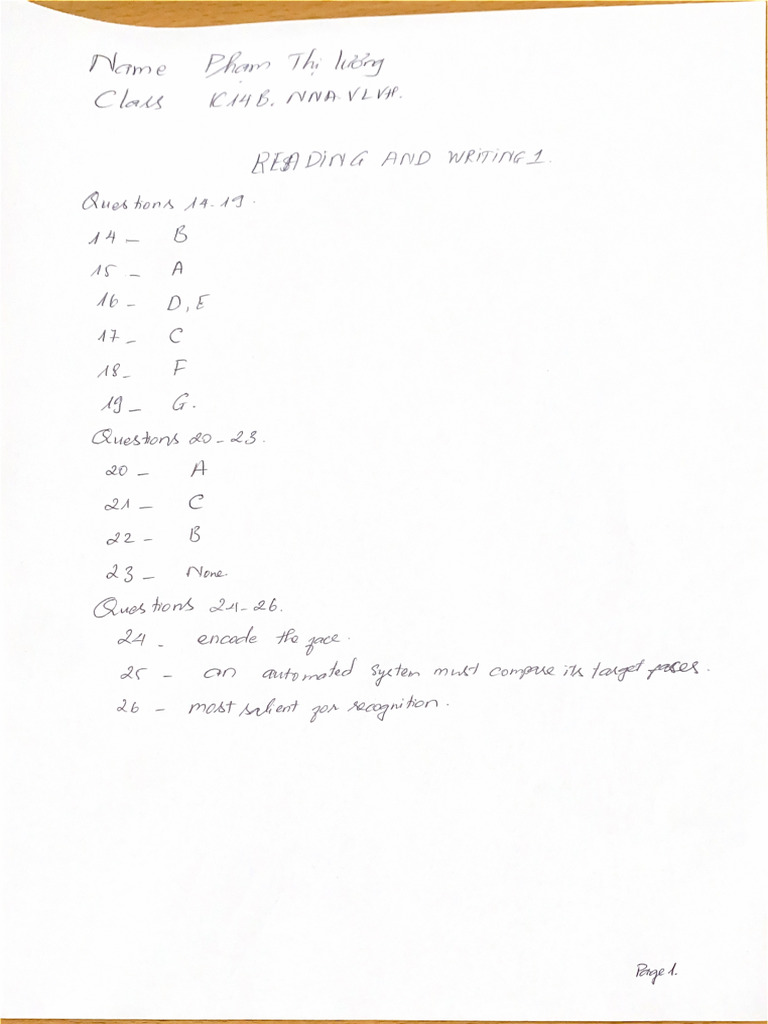 Name Phạm Thị Lương
Class K14B. NNA. VLVH.
READING AND WRITING 1.
Questions 14-19.
14 - B
15 - A
16 - D, E
17 - C
18 - F
19 - G.
Questions 20-23.
20 - A
21 - C
22 - B
23 - None.
Questions 24-26.
24 - encode the face.
25 - an automated system must compare its target faces.
26 - most salient for recognition.
Page 1.